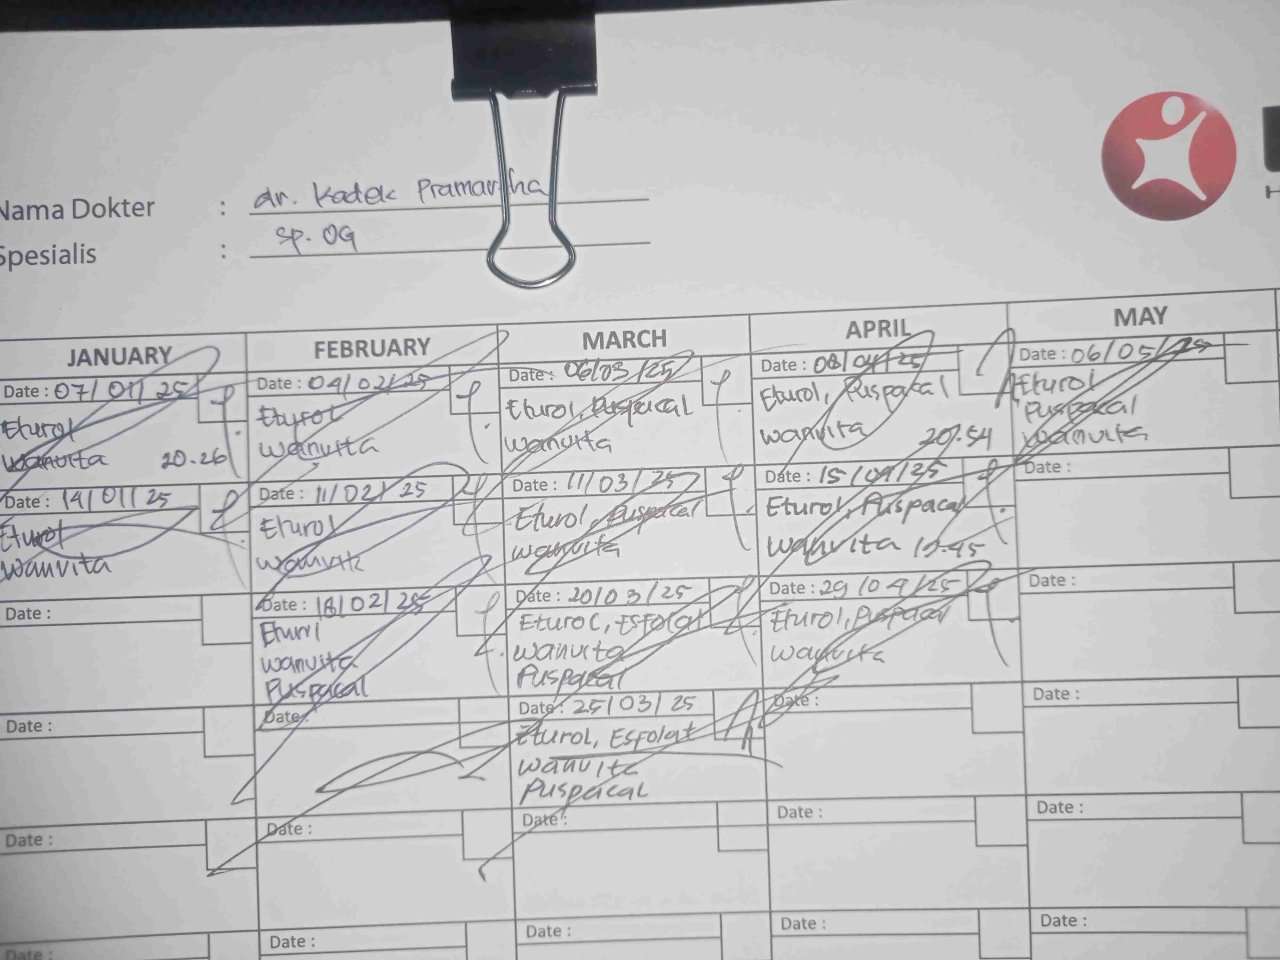 Nama Dokter : dr. Kadek Pramartha
Spesialis : Sp. OG
JANUARY
Date : 07/01/25
Eturol
Wanvita 20.26
Date : 14/01/25
Eturol
Wanvita
Date :
Date :
Date :
FEBRUARY
Date : 04/02/25
Eturol
Wanvita
Date : 11/02/25
Eturol
Date : 18/02/25
Wanvita
Puspacal
Date :
Date :
Date :
MARCH
Date : 06/03/25
Eturol, Puspacal
Wanvita
Date : 11/03/25
Eturol, Puspacal
Wanvita
Date : 20/03/25
Eturol, Esfolat
Wanvita
Puspacal
Date : 25/03/25
Eturol, Esfolat
Wanvita
Puspacal
Date :
Date :
APRIL
Date : 08/04/25
Eturol, Puspacal
Wanvita 20.54
Date : 15/04/25
Eturol, Puspacal
Wanvita
Date : 29/04/25
Eturol, Puspacal
Wanvita
Date :
Date :
Date :
MAY
Date : 06/05/25
Eturol
Puspacal
Wanvita
Date :
Date :
Date :
Date :
Date :